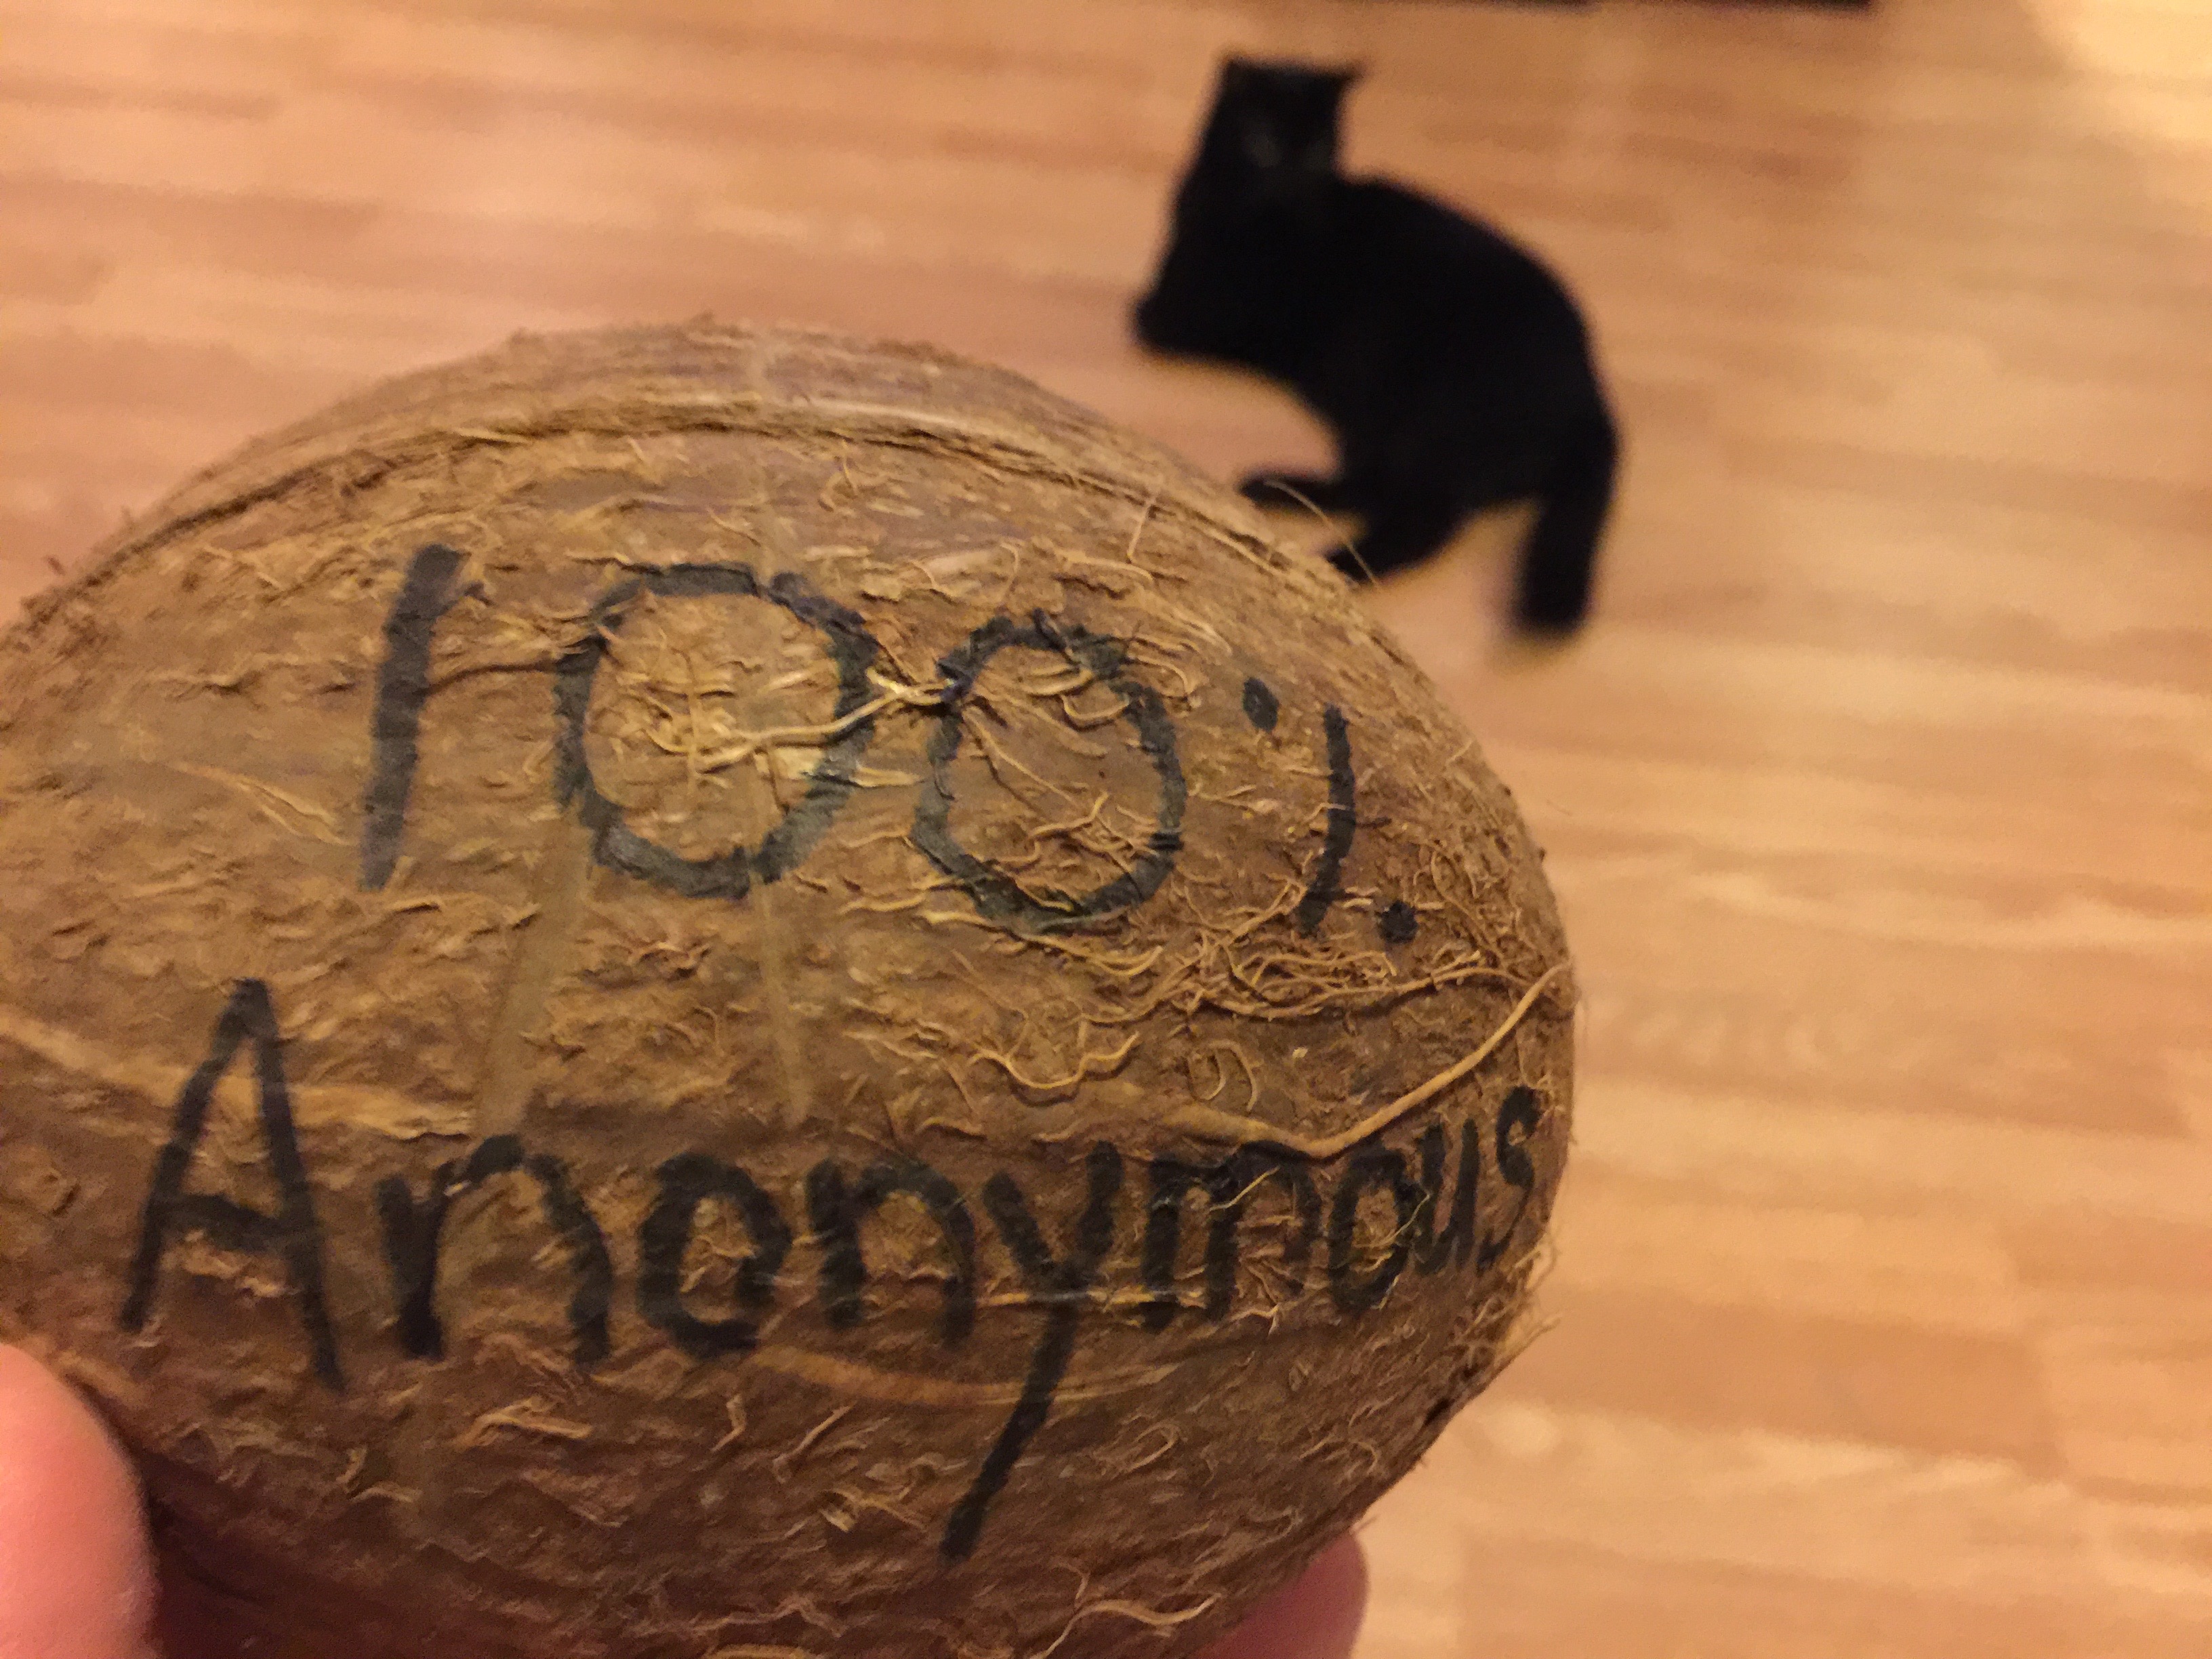 100%
Anonymous